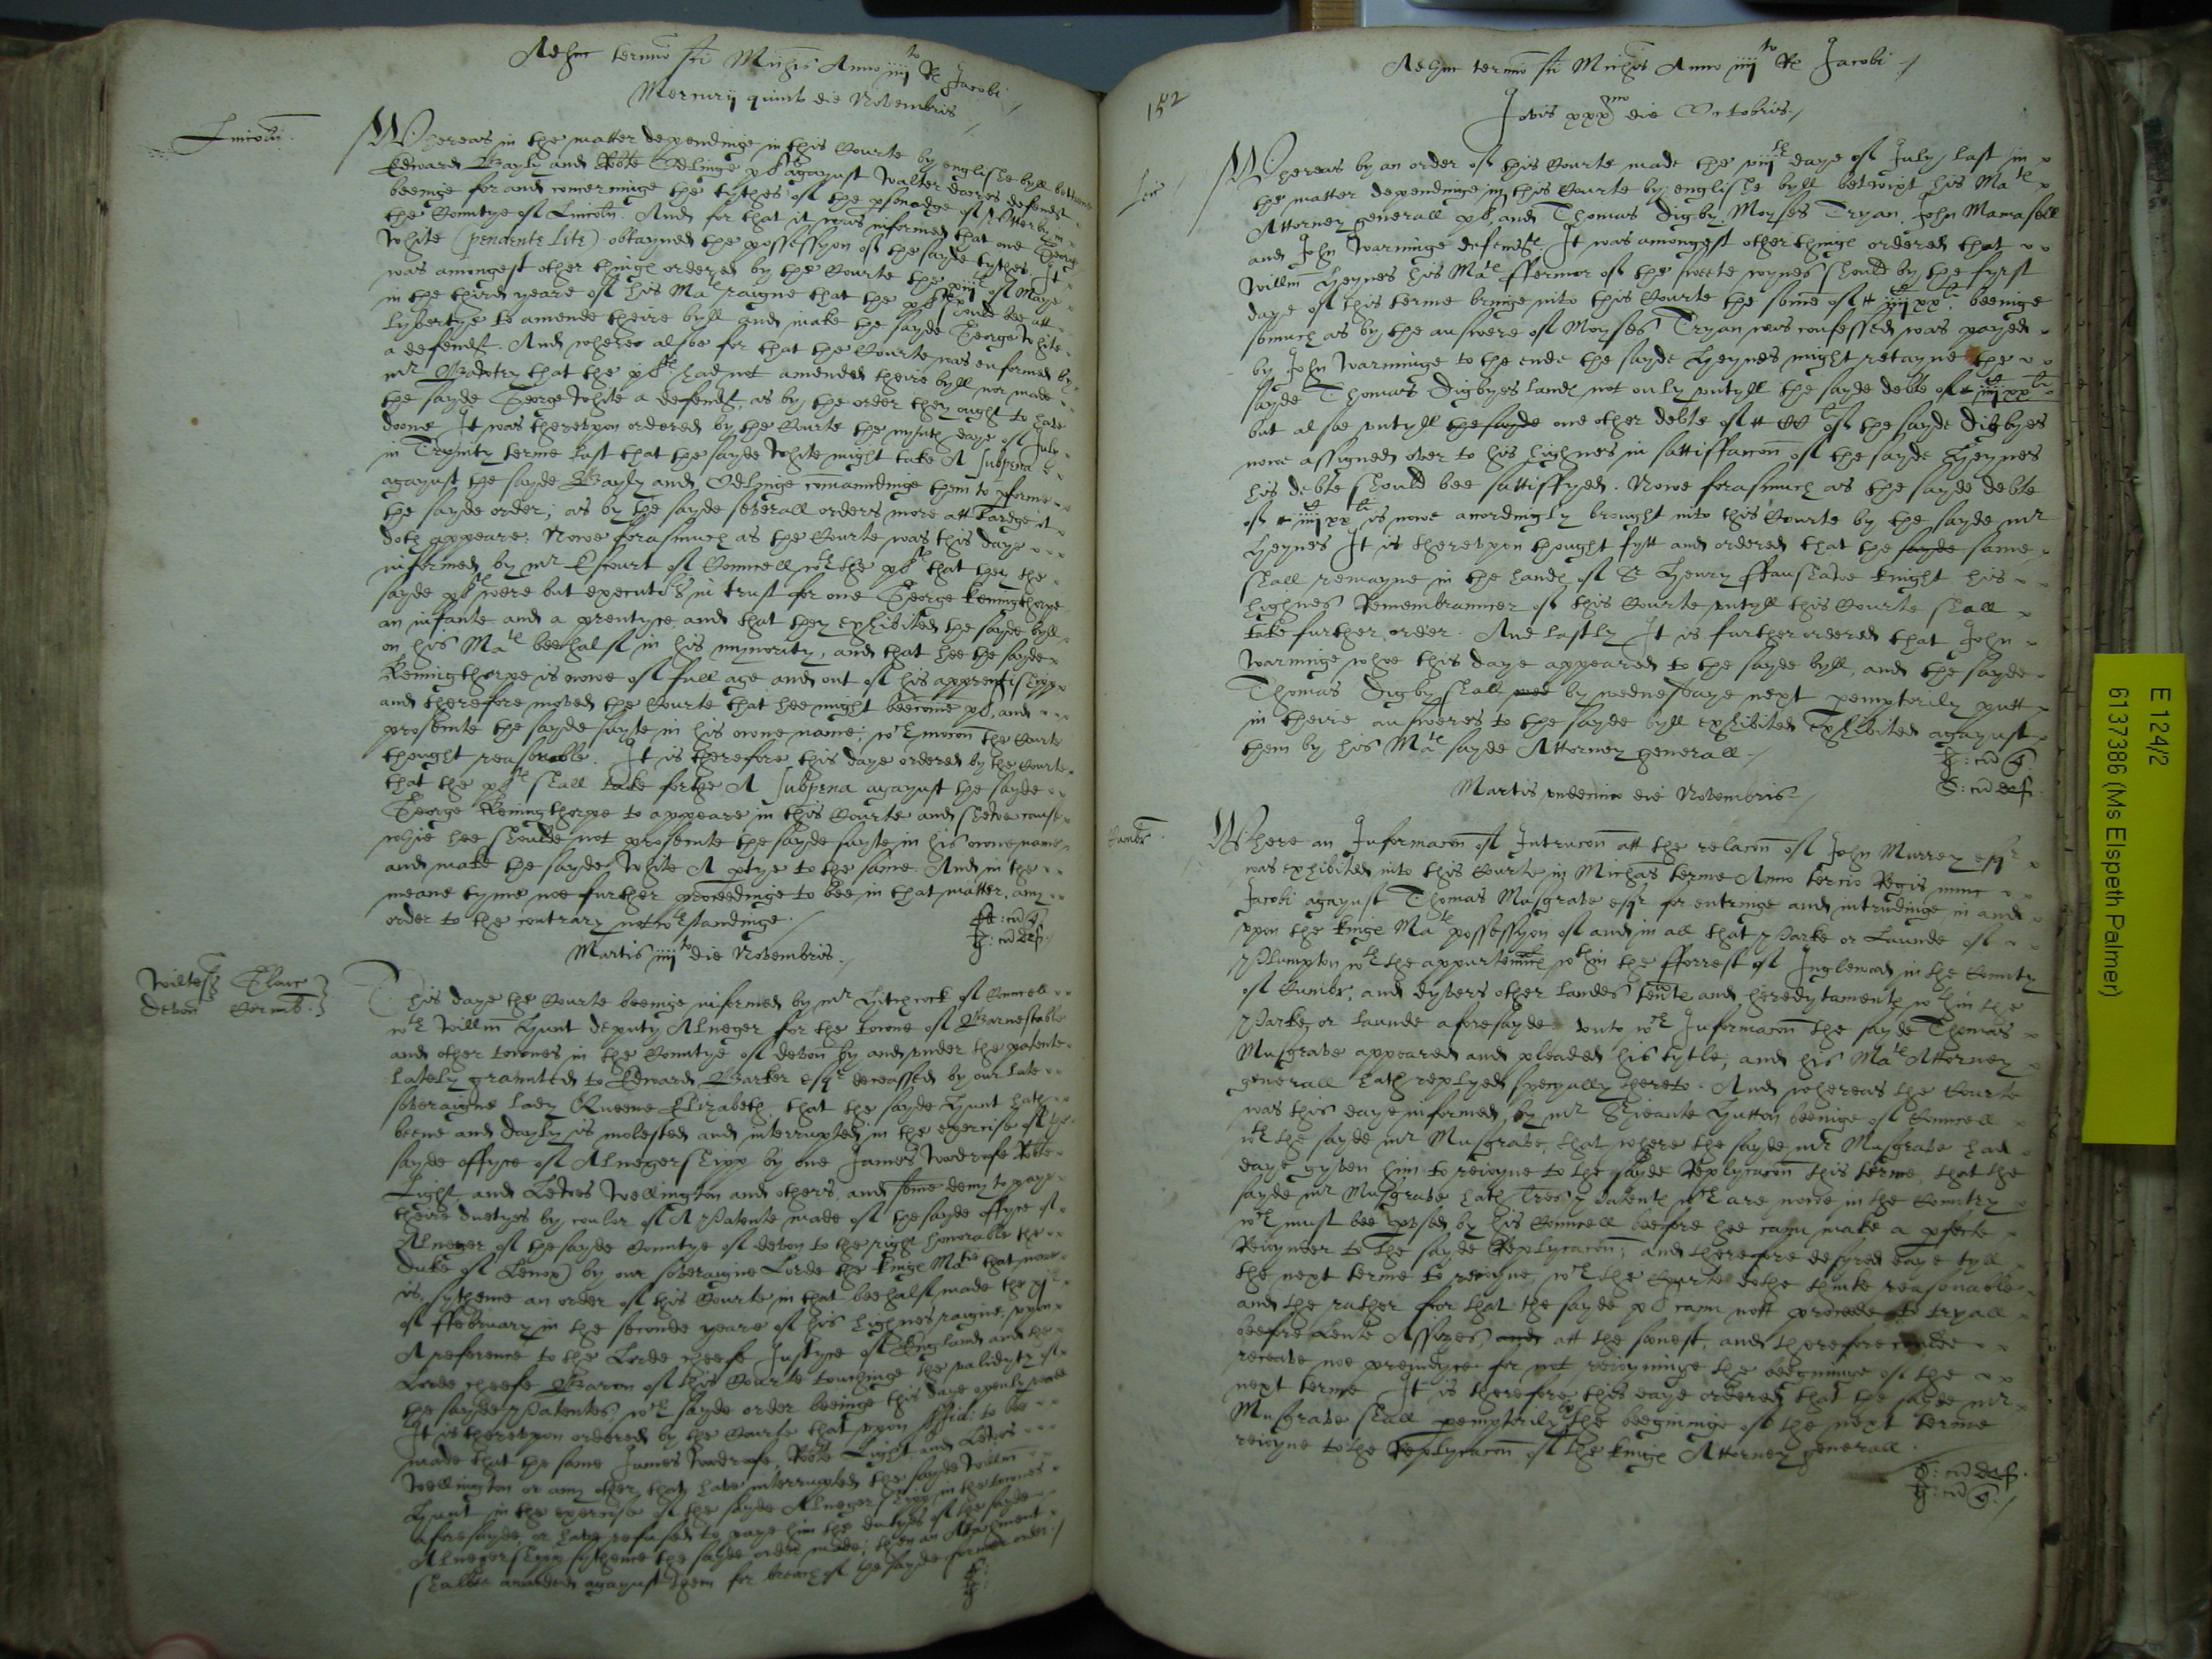 Adhuc termio sci Michis Anno iiijto Rx Jacobi
Mercurij quinto die Novembris
Lincoln
Whereas in the matter dependinge in this Courte by englishe byll betweene
Edward Bayly and Robte Odlinge plts agaynst Walter defendt
beeinge for and concerninge the tythes of the psonadge of in
the Countye of Lincoln. And for that it was informed that one George
White (pendente lite) obtayned the possessyon of the sayde tythes. It
was amongest other things ordered by the Courte the xiiijth of Maye
in the third yeare of his Mats raigne that the plts should bee att
lybertye to amende theire byll and make the sayde George White
a defendt. And where alsoe for that the Courte was enformed by
mr that the plts had not amended theire byll nor made
the sayde George White a defendt, as by the order they ought to have
doone It was therevpon ordered by the Courte the nynth daye of July
in Trynity terme last that the sayde White might take A Subpena
agaynst the sayde Bayly and Odlinge comaundinge them to pforme
the sayde order, as by the sayde severall orders more att lardge it
doth appeare. Nowe forasmuch as the Courte was this daye
informed by mr Escourt of Councell wth the plts that they the
sayde plts were but executors in trust for one George Keningthorpe
an infante and a prentyce and that they exhibited the sayde byll
on his Mats beehalf in his mynority, and that hee the sayde
Keningthorpe is nowe of full age and out of his apprentishipp
and therefore moved the Courte that hee might beecome plt, and
prosecute the sayde suyte in his owne name, wch mocon the Courte
thought reasonable. It is therefore this daye ordered by the Courte
that the plts shall take forthe A Subpena agaynst the sayde
George Keningthorpe to appeare in this Courte and shewe cause
whie hee shoulde not prosecute the sayde suyte in his owne name
and make the sayde White A ptye to the same. And in the
meane tyme noe further proceedinge to bee in that matter, any
order to the contrary notwthstandinge.
Martis iiijto die Novembris.
Wiltes
Devon
This daye the Courte beeinge informed by mr Hitchcock of Councell
wth Willm Hunt deputy Alneger for the towne of Barnestable
and other townes in the Countye of Devon by and vnder the patente
lately graunted to Edward Barker esqr deceassed by our late
soveraigne lady Queene Elizabeth, that the sayde Hunt hath
beene and dayly is molested and interrupted in the exercise of the
sayde offyce of Alnegershipp by one James Woodrofe Robte
Light, and Lewes Wellington and others, and some deny to paye
theire dutyes by coulor of A Patente made of the sayde offyce of
Alneger of the sayde Countye of Devon to the right honorable the
Duke of Lenox) by our soveraigne Lorde the kings Matie that nowe
is, sythence an order of this Courte in that beehalf made the
of ffebruary in the seconde yeare of his highnes raigne, vpon
A reference to the Lorde cheefe Justyce of England and the
Lorde cheefe Baron of this Courte touchinge the validyty of
the sayde Patentes, wch sayde order beeinge this daye openly reade
It is therevpon ordered by the Courte that vpon affid: to bee
made that the same James Woodrofe, Robte Light, and Lewes
Wellington or any other that have interrupted the sayde Willm
Hunt in the exercise of the sayde Alnegershipp in the townes
aforesayde or have refused to paye him the dutyes of the sayde
Alnegershipp sythence the sayde order made, then an Attachment
shalbee awarded agaynst them for breach of the sayde former order.
152
Adhuc termio sci Michis Anno iiijto Rx Jacobi
Jovis xxxmo die Octobris
Whereas by an order of this Courte made the viijth daye of July last in
the matter dependinge in this Courte by englishe byll betwixt his Mats
Attorney generall plt, and Thomas Digby, Moyses Tryan, John Mamasell
and John Warninge defendts It was amongest other things ordered that
Willm Heynes his Mats ffermor of the sweete wynes should by the fyrst
daye of this terme bringe into this Courte the some of iiijxx li beeinge
somuch as by the answere of Moyses Tryan was confessed was payed
by John Warninge to the ende the sayde Heynes might retayne the
sayde Thomas Digbyes lands not only vntyll the sayde debte of iiijxx li
but alsoe vntyll the sayde one other debte of CC li of the sayde Digbyes
nowe assigned over to his highnes in sattisfaccon of the sayde Heynes
his debte should bee sattisfyed. Nowe forasmuch as the sayde debte
of iiijxx li is nowe accordingly brought into this Courte by the sayde mr
Heynes It is therevpon thought fytt and ordered that the sayde same
shall remayne in the hands of Sr Henry ffanshawe knight his
highnes Remembrauncer of this Courte vntyll this Courte shall
take further order. And lastly It is further ordered that John
Warninge whoe this daye appeared to the sayde byll, and the sayde
Thomas Digby shall by wednesdaye next pemptorily putt
in theire answeres to the sayde byll exhibited Exhibited agaynst
them by his Mats sayde Attorney generall.
Martis vndecimo die Novembris
Cumbr
Where an Informacon of Intrucon att the relacon of John Murrey esqr
was exhibited into this Courte in Michas terme Anno tercio Regis nunc
Jacobi agaynst Thomas Musgrave esqr for entringe and intrudinge in and
vpon the kings Mats possessyon of and in all that Parke or Launde of
Plumpton wth the appurtennces wthin the fforrest of Inglewood in the County
of Cumbr, and dyvers other landes tents and heredytaments wthin the
Parke or launde aforesayde vnto wch Informacon the sayde Thomas
Musgrave appeared and pleaded his tytle, and his Mats Attorney
generall hath replyed specyally thereto. And whereas the Courte
was this daye informed by mr Srieante Hutton beeinge of Councell
wth the sayde mr Musgrave, that where the sayde mr Musgrave had
daye gyven him to reioyne to the sayde Replycacon this terme, that the
sayde mr Musgrave hath lres Patents wch are nowe in the Countrey
wch must bee pvsed by his Councell beefore hee cann make a pfecte
Reioynder to the sayde Replycacon, and therefore desyred daye tyll
the next terme to reioyne, wch the Courte dothe thinke reasonable
and the rather for that the sayde plt cann nott proceede to tryall
beefore Lente Assizes, and att the sonest, and therefore coulde
receave noe preiudyce for not reioyninge the beeginninge of the
next terme It is therefore this daye ordered that the sayde mr
Musgrave shall pemptorily by the beeginninge of the next terme
reioyne to the Replycacon of the kings Attorney generall.
E 124/2
6137386 (Ms Elspeth Palmer)